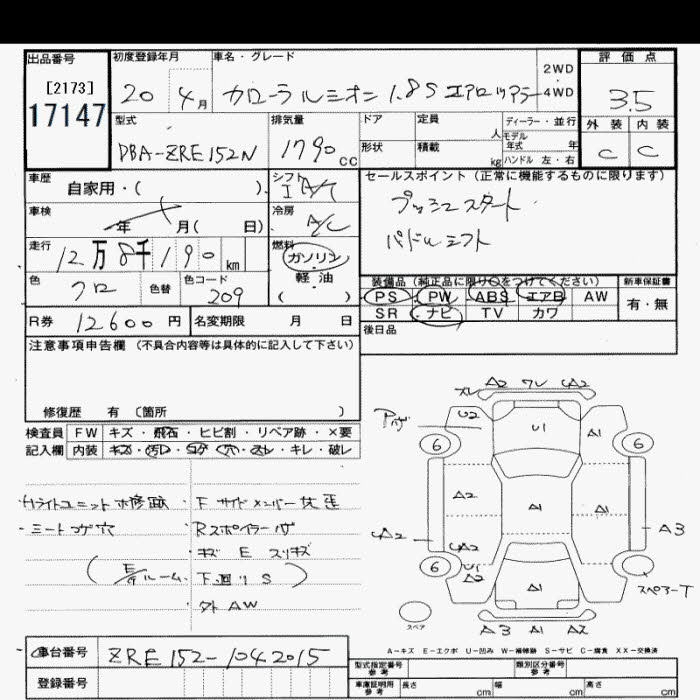 出品番号 初度登録年月 車名・グレード 2WD・4WD 評価点
[2173]
17147
20 4月 カローラルミオン 1.8S エアロツアラー 3.5
型式 排気量 ドア 定員 人 ディーラー・並行 外装 内装
モデル年式 年
形状 積載 kg ハンドル 左・右
DBA-ZRE152N 1790cc C C
車歴 自家用・( ) シフト I A/T セールスポイント (正常に機能するものに限ります)
プッシュスタート
車検 年 月( 日) 冷房 A/C
パドルシフト
走行 12万8千190km 燃料 ガソリン・軽油 ( )
装備品 (純正品に限り○をつけてください) 新車保証書
色 クロ 色替 色コード 209
PS PW ABS エアB AW 有・無
SR ナビ TV カワ
R券 12600円 名変期限 月 日 後日品
注意事項申告欄 (不具合内容等は具体的に記入して下さい)
修復歴 有 (箇所 )
検査員記入欄 FW キズ・飛石・ヒビ割・リペア跡・×要
内装 キズ・汚レ・コゲ・穴・スレ・キレ・破レ
シートコゲ穴
F サイドメンバー
Rスポイラー
キズ E スリキズ
下廻り S
外AW
A2 ワレ A2
U2 U1 A1
6 6
A2 A1 A1
A2 A2 A3
6 U1
A2 A1
スペアーT
スペア A3 A1 A2
A-キズ E-エクボ U-凹み W-補修跡 S-サビ C-腐食 XX-交換済
車台番号 ZRE152-1042015
型式指定番号 参考 類別区分番号 参考
登録番号
車庫証明用 参考 長さ cm 幅 cm 高さ cm